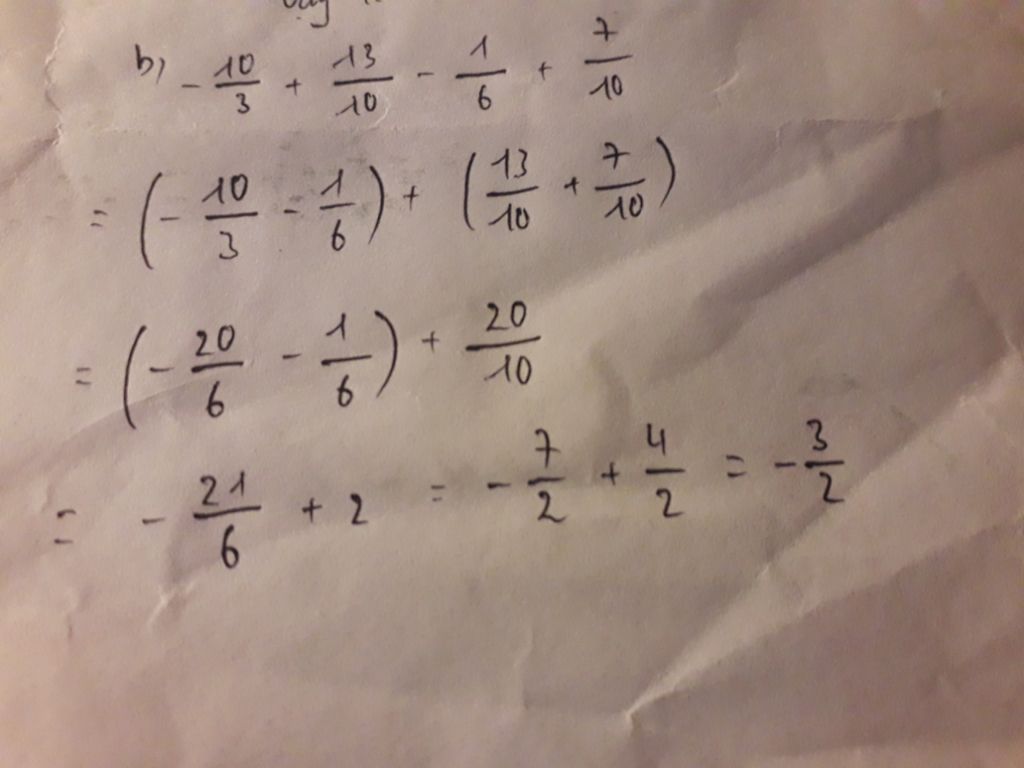 b) - 10/3 + 13/10 - 1/6 + 7/10
= (- 10/3 - 1/6) + (13/10 + 7/10)
= (- 20/6 - 1/6) + 20/10
= - 21/6 + 2 = - 7/2 + 4/2 = - 3/2